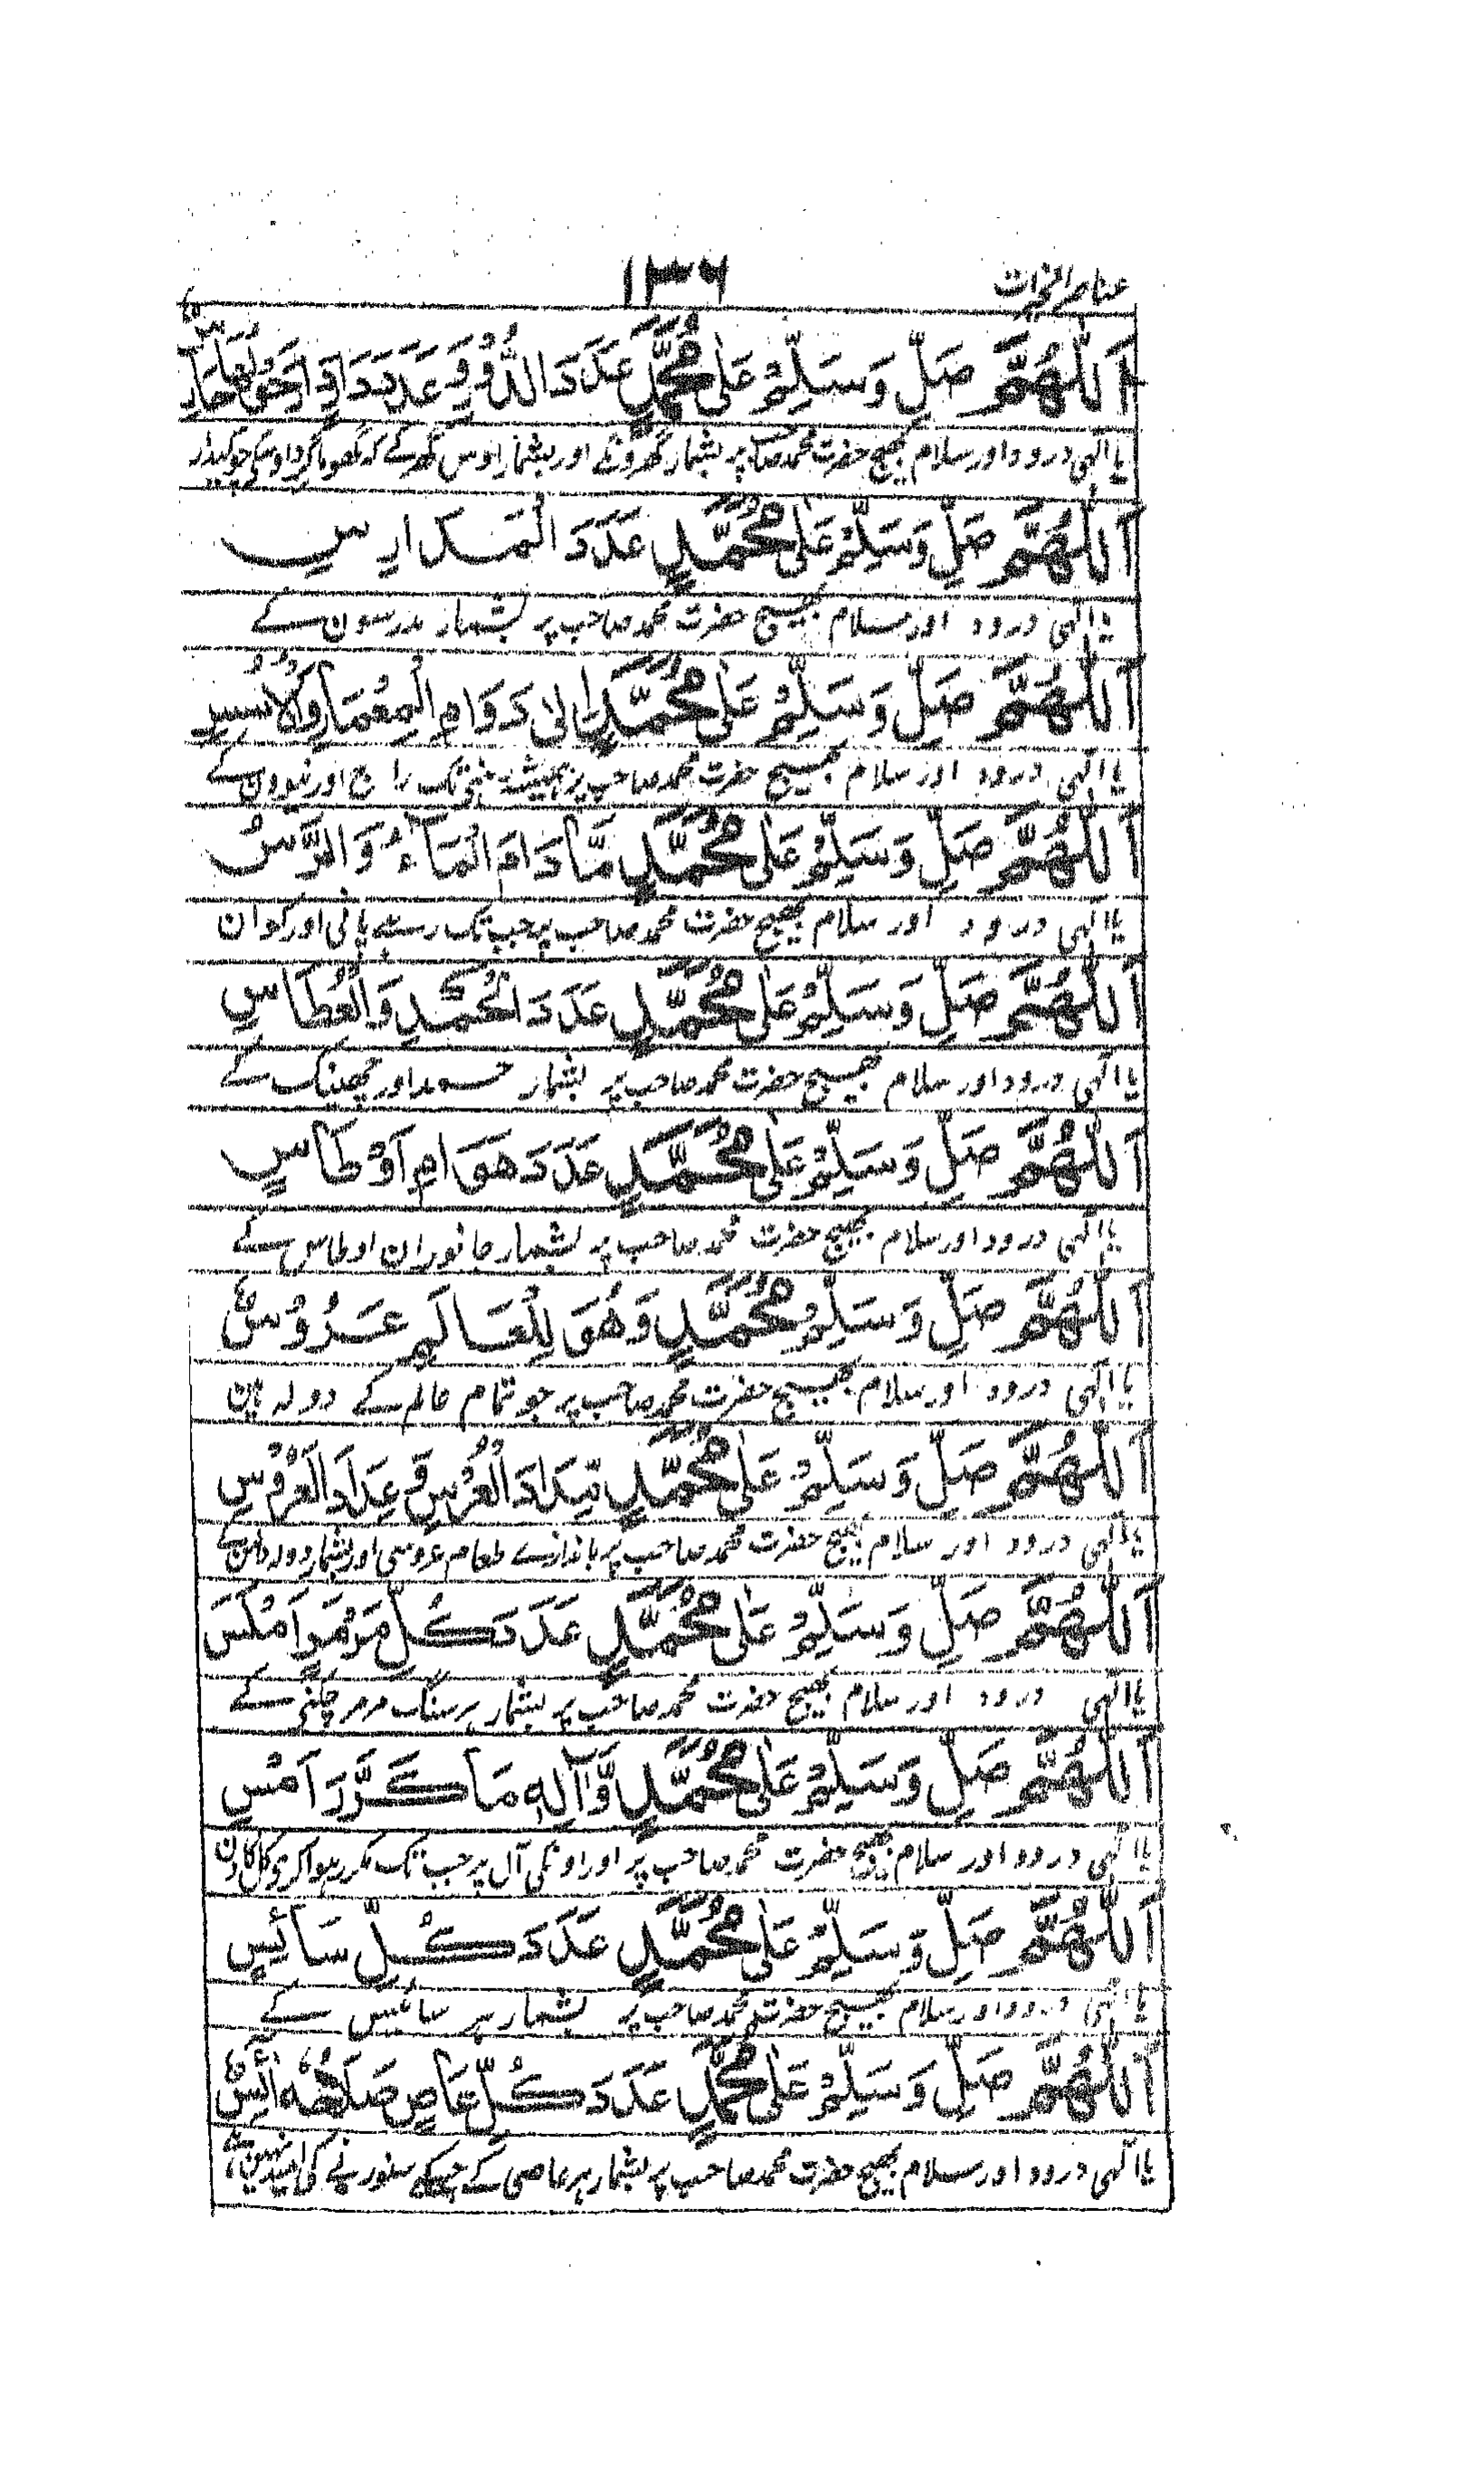 عناصر الخیرات
۱۳۶
اَللّٰهُمَّ صَلِّ وَسَلِّمْ عَلٰى مُحَمَّدٍ عَدَدَ الدُّوْرِ وَ
یا الٰہی درود اور سلام بھیج حضرت محمد صاحب پر بشمار گھرونکے اور بشمار اوس گھر کے کہ گھوما گرد اوسکی چوکیدار
اَللّٰهُمَّ صَلِّ وَسَلِّمْ عَلٰى مُحَمَّدٍ عَدَدَ الْمَدَارِسِ
یا الٰہی درود اور سلام بھیج حضرت محمد صاحب پر بشمار مدرسون کے
اَللّٰهُمَّ صَلِّ وَسَلِّمْ عَلٰى مُحَمَّدٍ اِلٰى دَوَامِ الْمِعْمَارِ وَالْاُسُسِ
یا الٰہی درود اور سلام بھیج حضرت محمد صاحب پر ہمیشہ تک راج اور نیوون کے
اَللّٰهُمَّ صَلِّ وَسَلِّمْ عَلٰى مُحَمَّدٍ مَّا دَامَ الْمَآءُ وَالرَّسُّ
یا الٰہی درود اور سلام بھیج حضرت محمد صاحب پر جب تک رہے پانی اور کوان
اَللّٰهُمَّ صَلِّ وَسَلِّمْ عَلٰى مُحَمَّدٍ عَدَدَ الْحَمْدِ وَالْعُطَاسِ
یا الٰہی درود اور سلام بھیج حضرت محمد صاحب پر بشمار حمد اور چھینک کے
اَللّٰهُمَّ صَلِّ وَسَلِّمْ عَلٰى مُحَمَّدٍ عَدَدَ هَوَامِ اَوْطَاسٍ
یا الٰہی درود اور سلام بھیج حضرت محمد صاحب پر بشمار جانوران اوطاس کے
اَللّٰهُمَّ صَلِّ وَسَلِّمْ مُحَمَّدٍ وَهُوَ لِلْعَالَمِ عَرُوْسٌ
یا الٰہی درود اور سلام بھیج حضرت محمد صاحب پر جو تمام عالم کے دولہ ہین
اَللّٰهُمَّ صَلِّ وَسَلِّمْ عَلٰى مُحَمَّدٍ الْعُرُسِ وَعِدَادَ الْعَرُوْسِ
یا الٰہی درود اور سلام بھیج حضرت محمد صاحب پر باندازے طعام عروسی اور بشمار دولہ دلہن کے
اَللّٰهُمَّ صَلِّ وَسَلِّمْ عَلٰى مُحَمَّدٍ عَدَدَ كُلِّ مَرْمَرٍ اَمْلَسَ
یا الٰہی درود اور سلام بھیج حضرت محمد صاحب پر بشمار ہر سنگ مرمر چکنے کے
اَللّٰهُمَّ صَلِّ وَسَلِّمْ عَلٰى مُحَمَّدٍ وَّاٰلِهٖ مَا كَرَّرَ اَمْسِ
یا الٰہی درود اور سلام بھیج حضرت محمد صاحب پر اور اونکی آل پر جب تک مکرر ہوا کرے کل کا دن
اَللّٰهُمَّ صَلِّ وَسَلِّمْ عَلٰى مُحَمَّدٍ عَدَدَ كُلِّ سَائِسٍ
یا الٰہی درود اور سلام بھیج حضرت محمد صاحب پر بشمار ہر سائس کے
اَللّٰهُمَّ صَلِّ وَسَلِّمْ عَلٰى مُحَمَّدٍ عَدَدَ كُلِّ عَاصٍ صَلَاحُهٗ
یا الٰہی درود اور سلام بھیج حضرت محمد صاحب پر بشمار ہر عاصی کے جسکے سنورنے کی امید نہین ہے